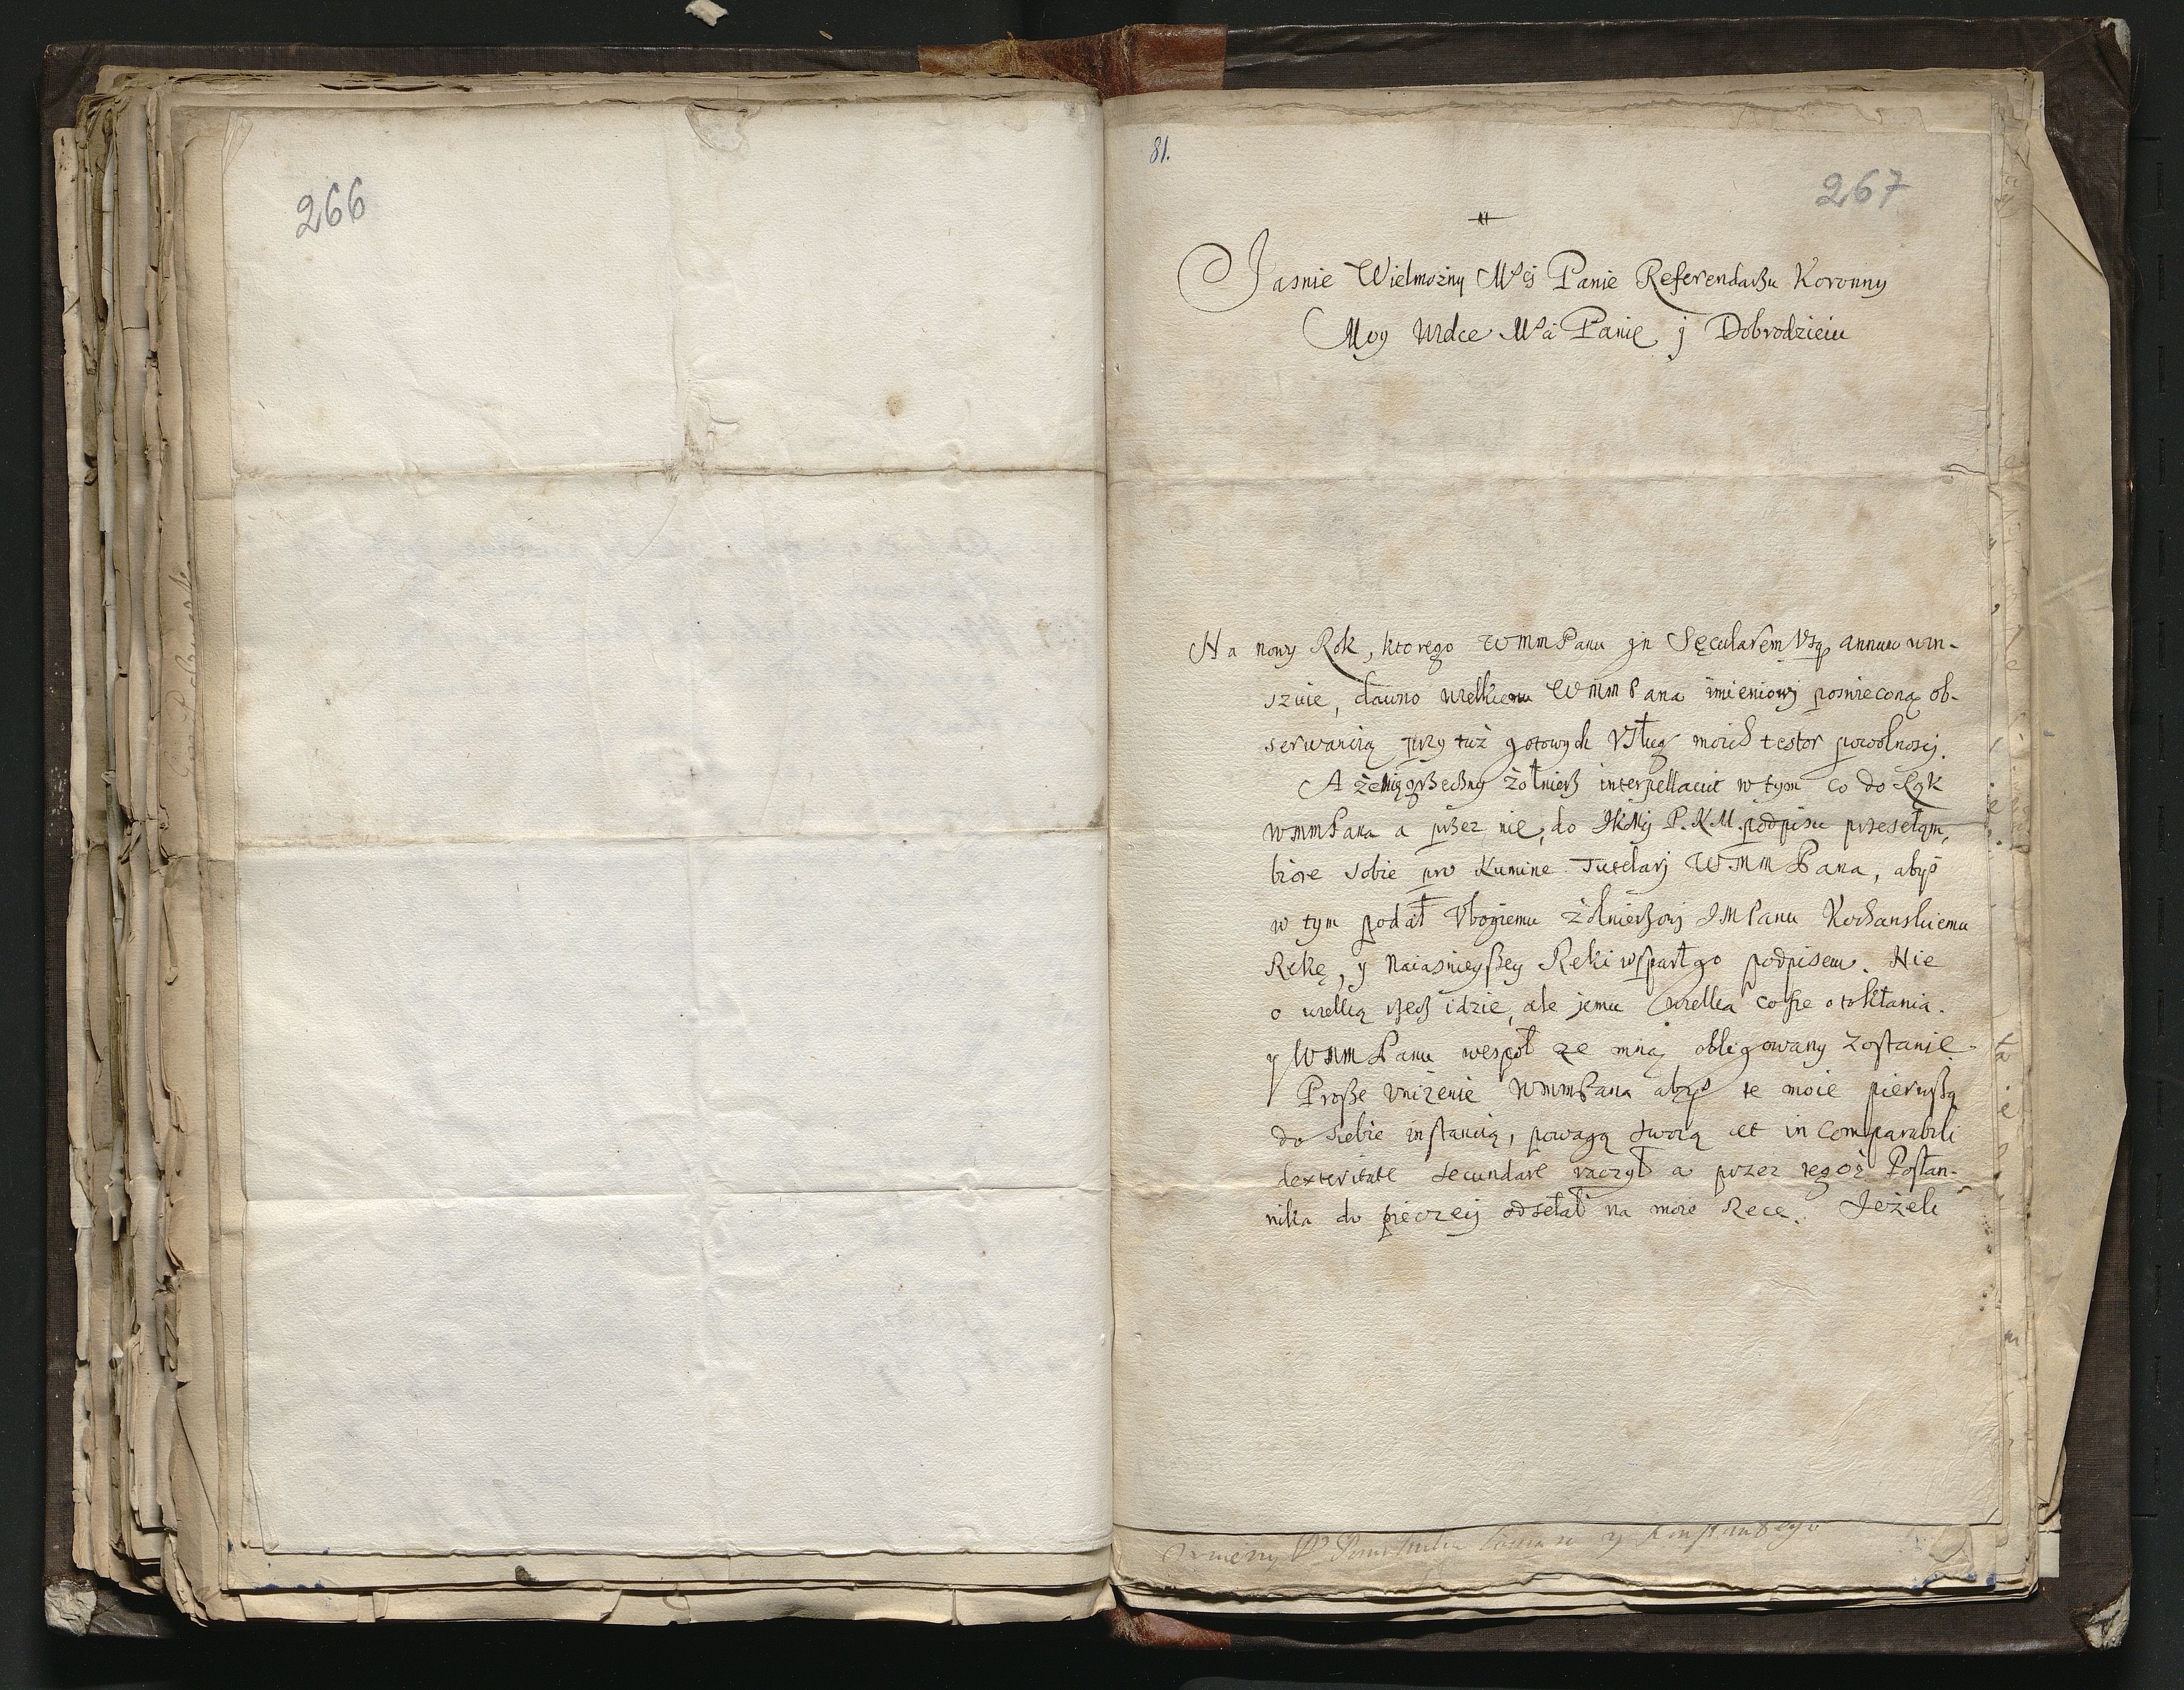 266
81.
267
Jasnie Wielmożny Mςi Panie Referendarzu Koronny
Moy Wdce Mςi Panie j Dobrodzieiu
Na nowy Rok, ktorego WMMPanu jn Sęcularem Vsq annum win-
szuie, dawno wielkiemu WMMPana imieniowj poswieconą ob-
serwancią przy tuż gotowych Vsług moich testor powolnoscj.
A że mię grzeczny żołnierz interpellacie w tym co do Rąk
WMMPana a przez nie, do JKMj P.K.M. podpisu przesełam,
biore sobie pro Numine Tutelarj WMMPana, abyś
w tym podał Vbogiemu żołnierzowj JMPanu Kochanskiemu
Rękę, y Naiasnieyszey Reki wsparł go podpisem. Nie
o wielką rzecz idzie, ale jemu wielka
y WMMPanu wespoł ze mną obligowany zostanie.
Prosze Vniżenie WMMPana abyś te moie pierwszą
do siebie instancią, powagą swoią et in comparabili
dexteritate secundare raczył a przez tegoż Posłan-
nika do pieczęcj odsełał na moie Rece. Jeżeli